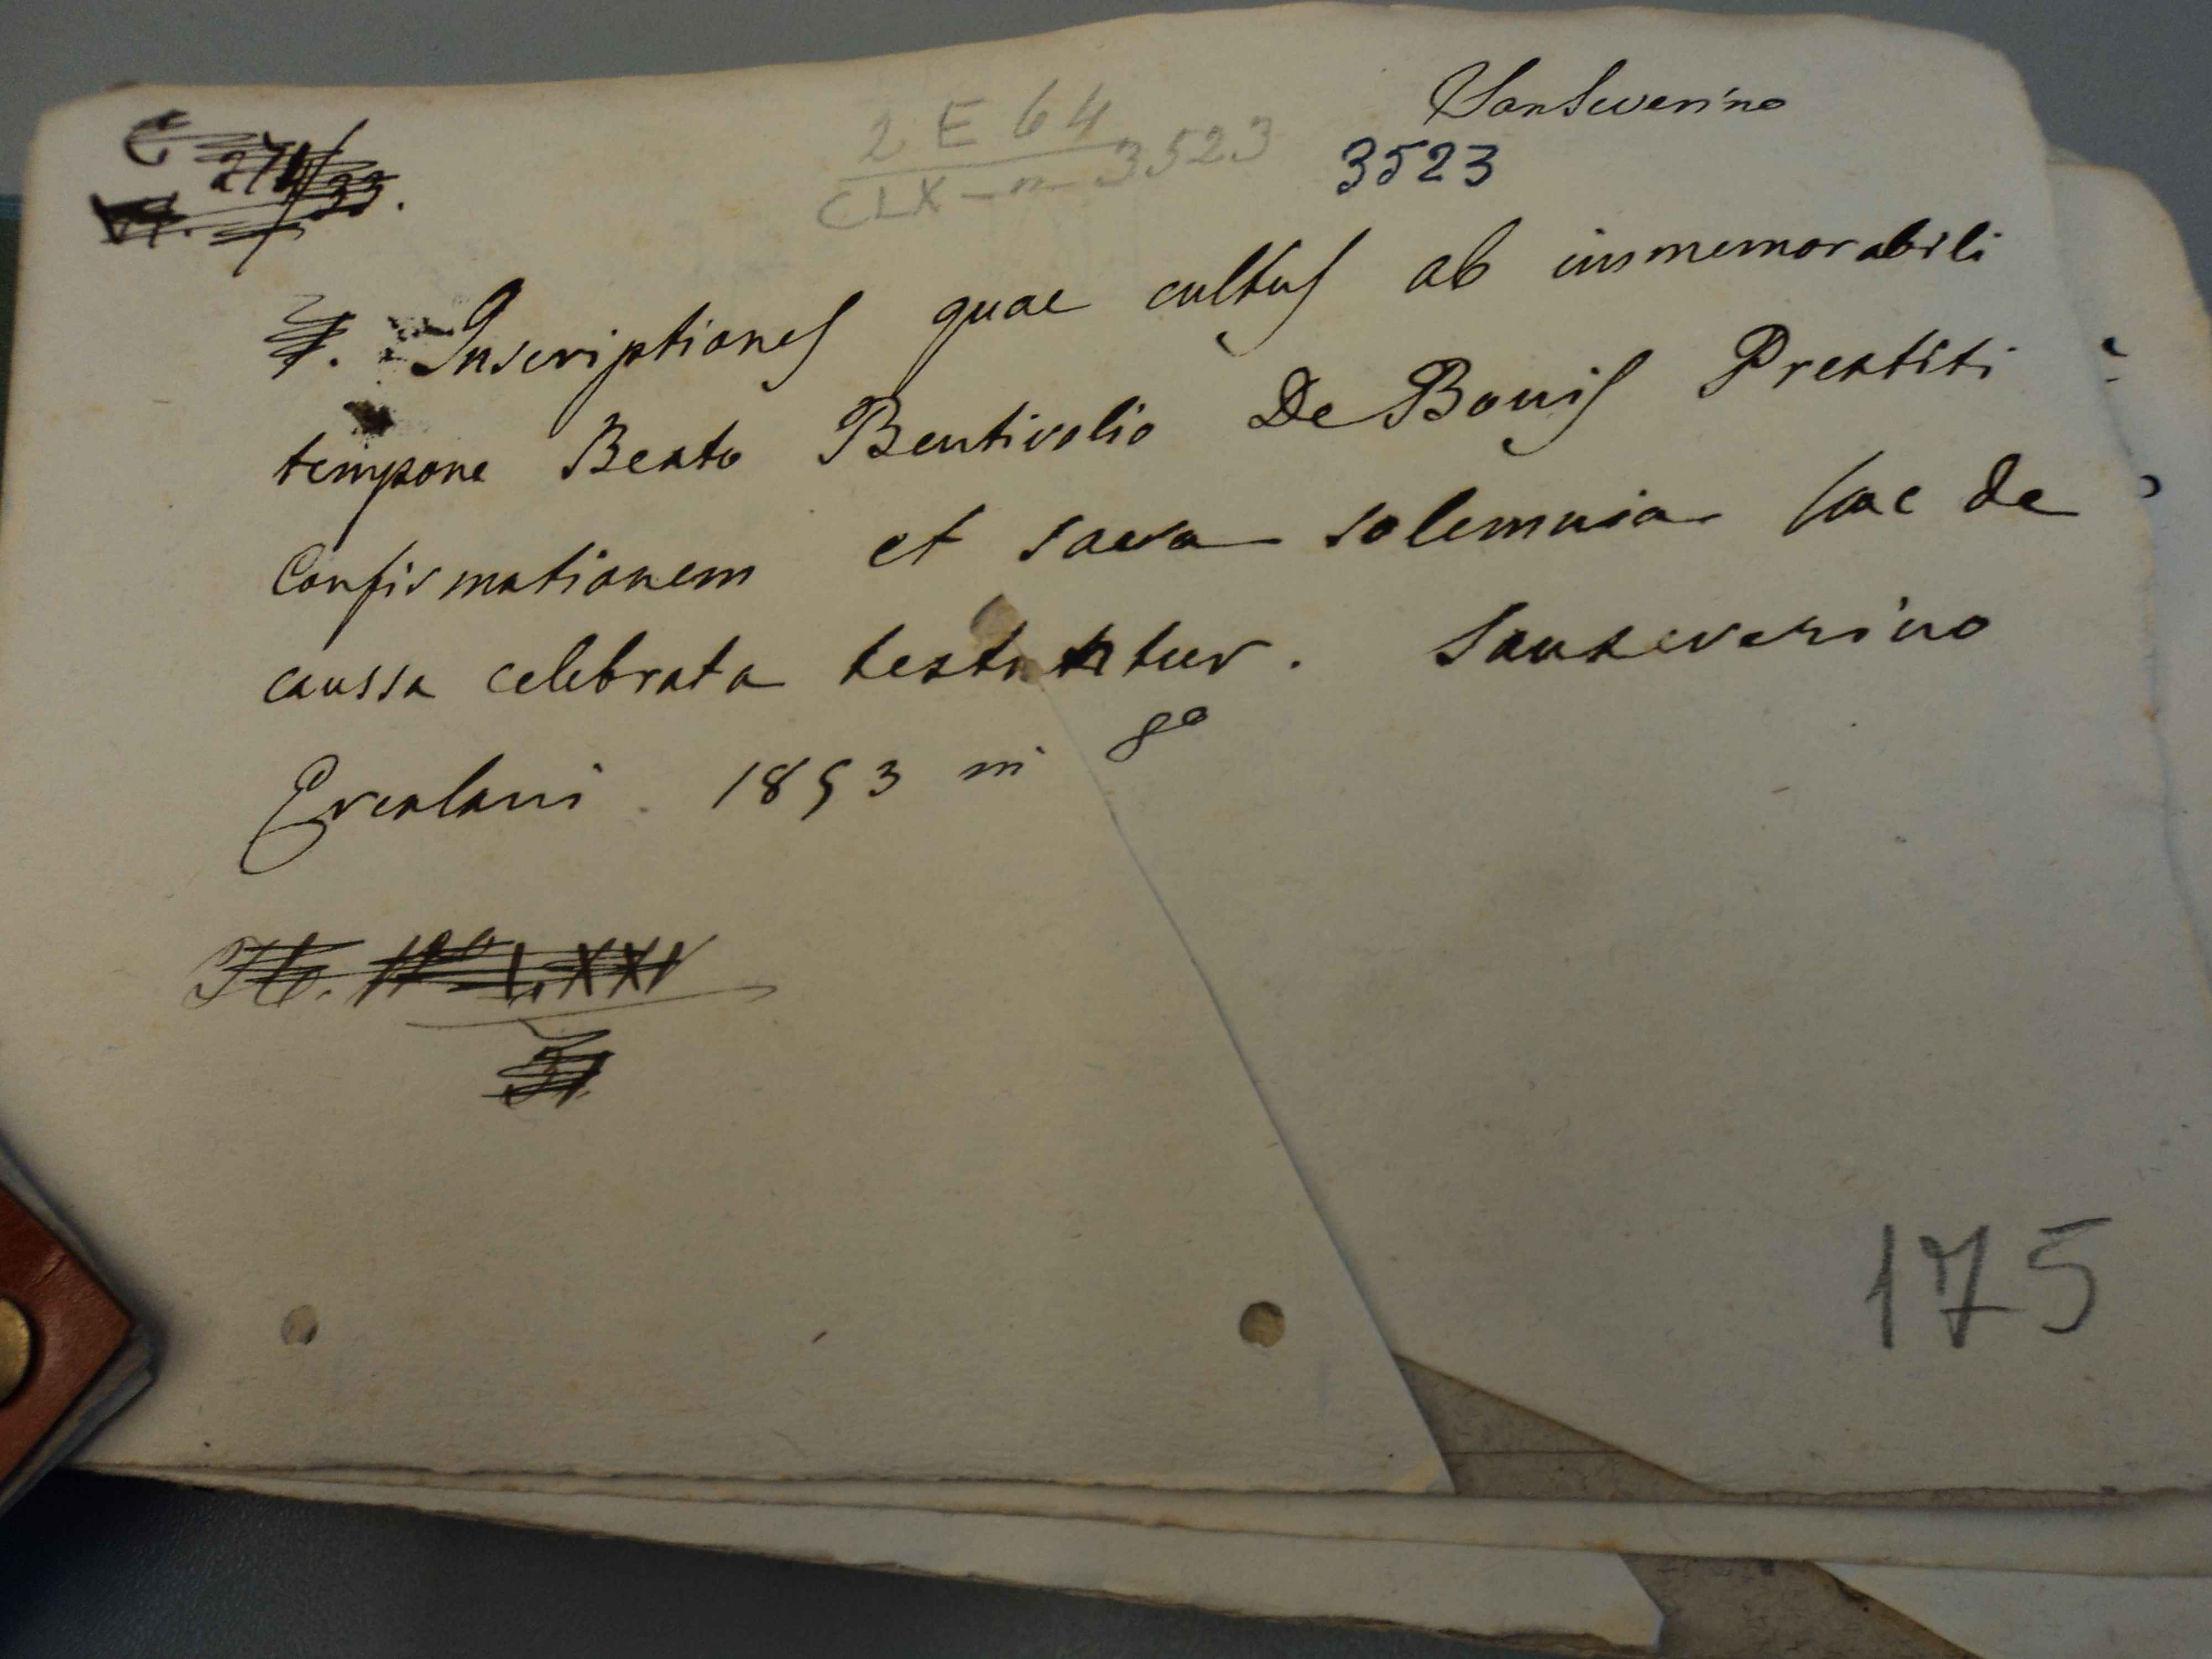 Sanseverino
2 E 64
CLX - n - 3523
3523
Inscriptiones quae cultus ab immemorabili
tempore Beato Bentivolio De Bonis Prestiti
Confirmationem et sacra solemnia hac de
caussa celebrata testantur. Sanseverino
Ercolani 1853 in 8º
175